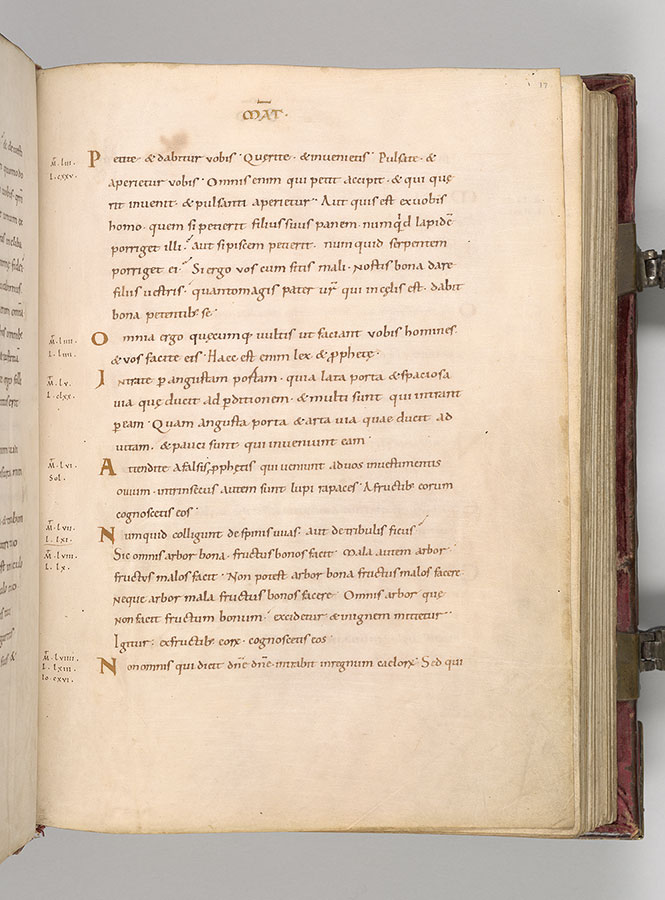 17
MAT·
M̄·liii·
L·cxxv·
Petite· & dabitur vobis· Quęrite· & invenietis· Pulsate· &
aperietur vobis· Omnis enim qui petit accipit· & qui quę
rit invenit· & pulsanti aperietur· Aut quis est exvobis
homo· quem si petierit filius suus panem· numq̇d lapidē
porriget illi· aut sipiscem petierit· numquid serpentem
porriget ei· Si ergo vos cum sitis mali· Nostis bona dare
filiis uestris· quantomagis pater ur̄· qui incęlis est· dabit
bona petentib; se·
M̄·liiii·
L·liiii·
Omnia ergo quęcumq; uultis ut faciant vobis homines
& vos facite eis· Haec est enim lex & ꝓphetę·
M̄·lv·
L·clxx·
Intrate ꝑ angustam portam· quia lata porta & spaciosa
uia quę ducit ad ꝑditionem· & multi sunt qui intrant
ꝑ eam· Quam angusta porta & arta uia quae ducit ad
uitam· & pauci sunt qui inveniunt eam·
M̄·lvi·
Sol·
Attendite afalsis ꝓphetis qui ueniunt aduos inuestimentis
ouium· intrinsecus autem sunt lupi rapaces· Afructib; eorum
cognoscetis eos·
M̄·lvii·
L·lxi·
Numquid colligunt despinis uuas· aut detribulis ficus
M̄·lviii·
L·lx·
Sic omnis arbor bona· fructus bonos facit· Mala autem arbor·
fructus malos facit· Non potest arbor bona fructus malos facere·
Neque arbor mala fructus bonos facere· Omnis arbor quę
non facit fructum bonum· excidetur & inignem mittetur·
Igitur· exfructib; eoꝝ· cognoscetis eos·
M̄·lviiii·
L·lxiii·
Io·cxvi·
Non omnis qui dicit dn̄e dn̄e· intrabit inregnum caeloꝝ· Sed qui